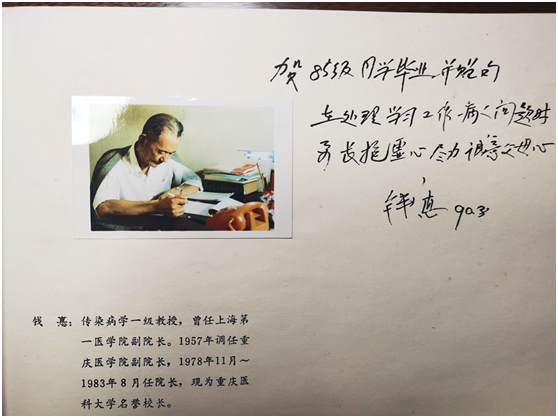 贺85级同学毕业并赠句
在处理学习工作病人问题时
要长抱虚心尽力
钱惪 90.3
钱惪：传染病学一级教授，曾任上海第
一医学院副院长。1957年调任重
庆医学院副院长，1978年11月～
1983年8月任院长，现为重庆医
科大学名誉校长。